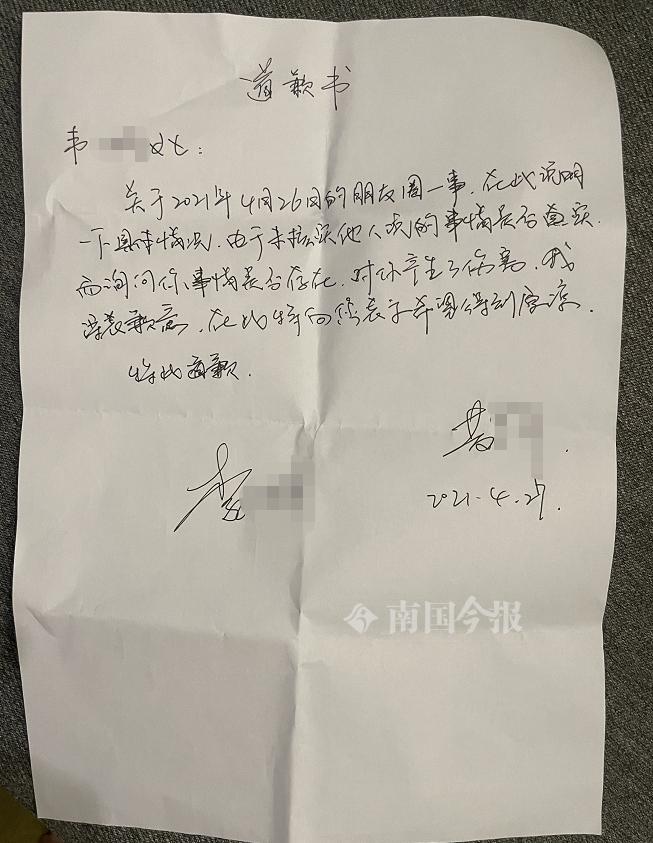 道歉书
韦 女士:
关于2021年4月26日的朋友圈一事,在此说明
一下具体情况,由于未核实他人说的事情是否真实,
而询问你事情是否存在,对你产生了伤害,我
深表歉意,在此特向您表示希望得到原谅.
特此道歉.
黄
李
2021.4.27.
南国今报